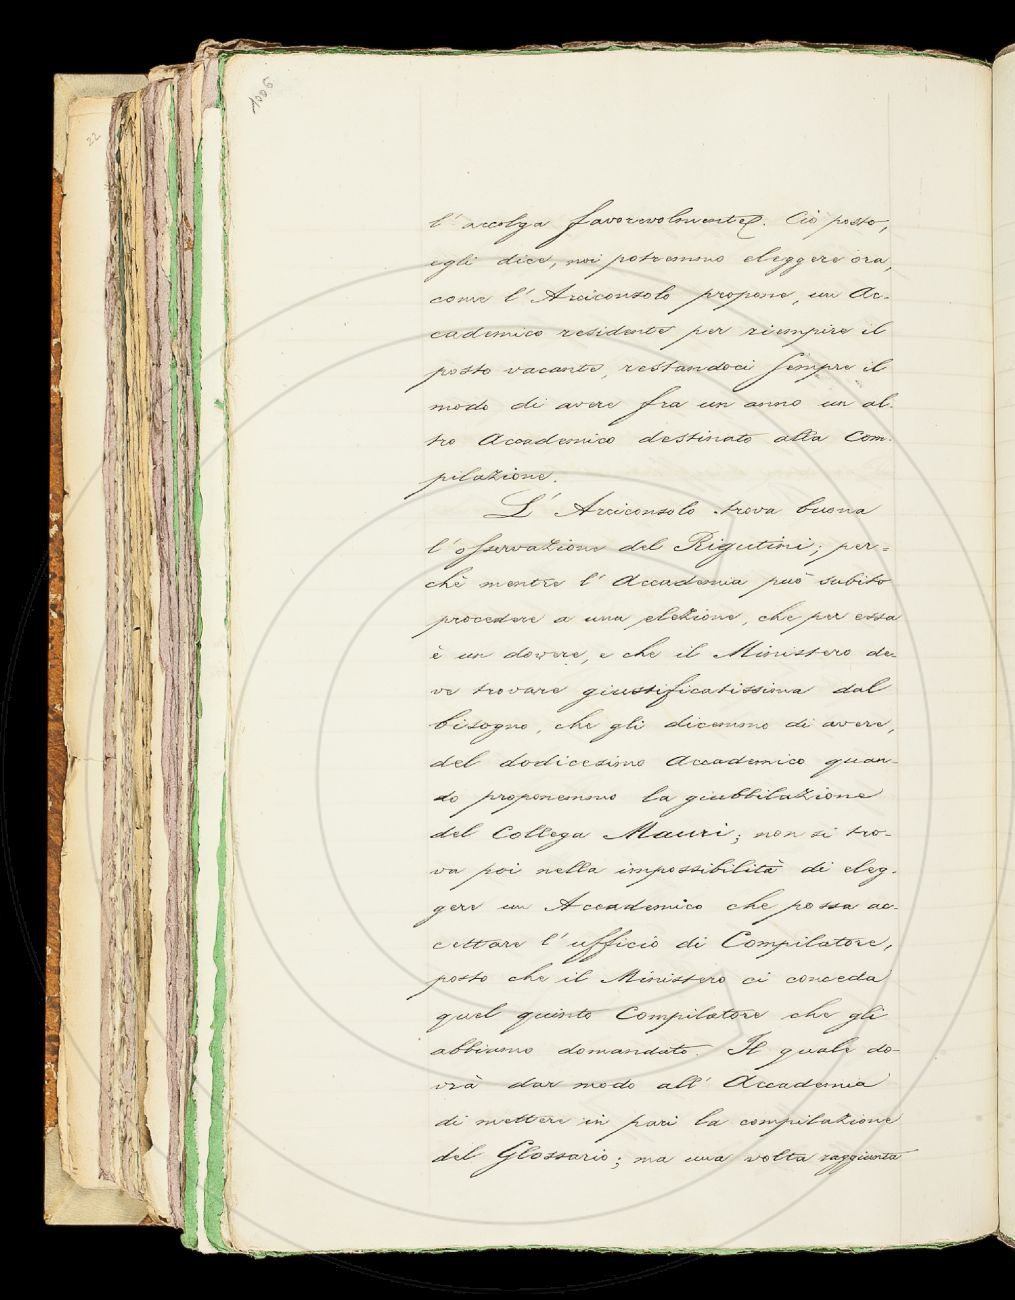 1006
22
l'accolga favorevolmente. Ciò posto,
egli dice, noi potremmo eleggere ora,
come l'Arciconsolo propone, un Ac-
cademico residente per riempire il
posto vacante, restandoci sempre il
modo di avere fra un anno un al-
tro Accademico destinato alla Com-
pilazione.
L'Arciconsolo trova buona
l'osservazione del Rigutini; per=
chè mentre l'Accademia può subito
procedere a una elezione, che per essa
è un dovere, e che il Ministero de-
ve trovare giustificatissima dal
bisogno, che gli dicemmo di avere,
del dodicesimo Accademico quan-
do proponemmo la giubbilazione
del Collega Mauri; non si tro-
va poi nella impossibilità di eleg-
gere un Accademico che possa ac-
cettare l'ufficio di Compilatore,
posto che il Ministero ci conceda
quel quinto Compilatore che gli
abbiamo domandato. Il quale do-
vrà dar modo all'Accademia
di mettere in pari la compilazione
del Glossario; ma una volta raggiunta